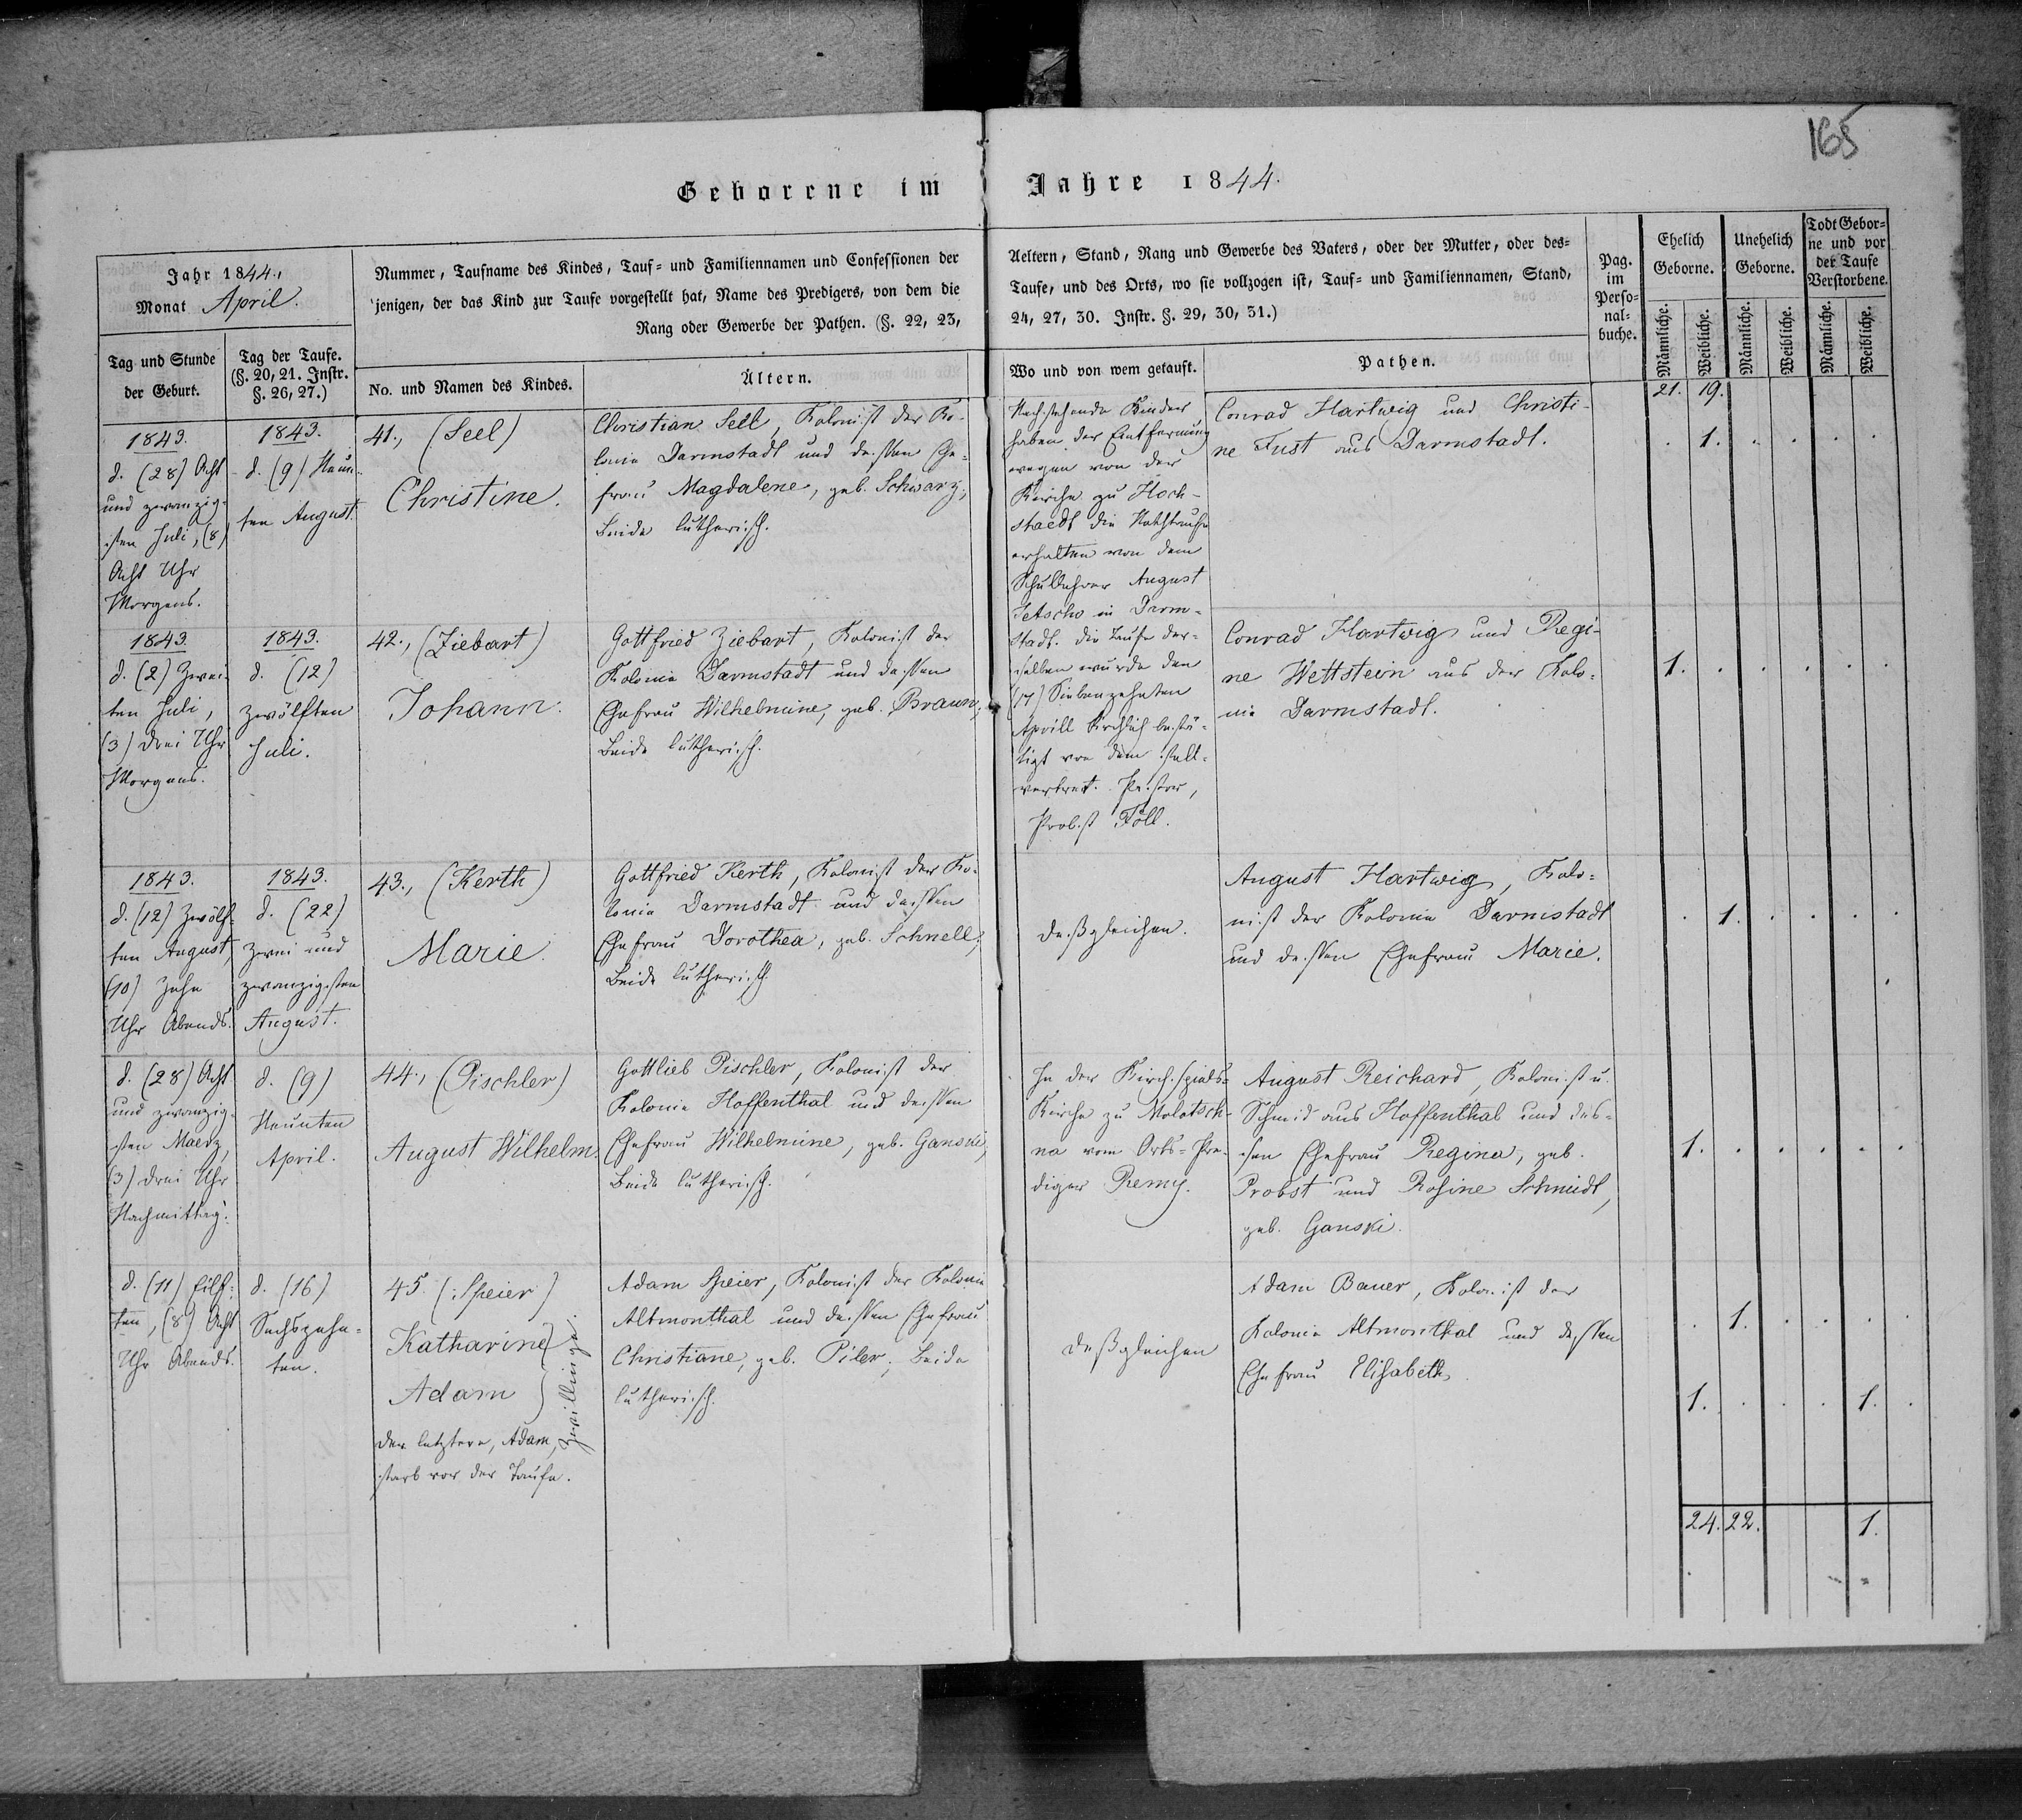 165
Geborene im Jahre 1844.
Jahr 1844.,
Monat April.
Nummer, Taufname des Kindes, Tauf- und Familiennamen und Confessionen der
jenigen, der das Kind zur Taufe vorgestellt hat, Name des Predigers, von dem die
Rang oder Gewerbe der Pathen. (§. 22, 23,
Aeltern, Stand, Rang und Gewerbe des Vaters, oder der Mutter, oder des-
Taufe, und des Orts, wo sie vollzogen ist, Tauf- und Familiennamen, Stand,
24, 27, 30. Instr. §. 29, 30, 31.)
Pag.
im
Perso-
nal-
buche.
Ehelich
Geborne.
Unehelich
Geborne.
Todt Gebor-
ne und vor
der Taufe
Verstorbene.
Männliche.
Weibliche.
Männliche.
Weibliche.
Männliche.
Weibliche.
Tag und Stunde
der Geburt.
Tag der Taufe.
(§. 20, 21. Instr.
§. 26, 27.)
No. und Namen des Kindes.
Ältern.
Wo und von wem getauft.
Pathen.
21. 19.
1843.
d. (28) Acht
und zwanzig-
sten Juli, (8)
Acht Uhr
Morgens.
1843.
d. (9) Neun-
ten August.
41., (Seel)
Christine.
Christian Sell, Kolonist der Ko-
lonie Darmstadt und dessen Ehe-
frau Magdalene, geb. Schwarz,
Beide lutherisch.
Nachstehende Kinder
haben der Entfernung
wegen von der
Kirche zu Hoch-
staedt die Nothtaufe
erhalten von dem
Schullehrer August
Jetscho in Darm-
stadt. Die Taufe der-
selben wurde den
(17) Siebenzehnten
Aprill kirchlich bestä-
tigt von dem stell-
vertret. Pastor,
Probst Föll.
Conrad Hartwig und Christi-
ne Fust aus Darmstadt.
1.
1843.
d. (2) Zwei-
ten Juli,
(3) Drei Uhr
Morgens.
1843.
d. (12)
Zwölften
Juli.
42., (Ziebart)
Johann.
Gottfried Ziebart, Kolonist der
Kolonie Darmstadt und dessen
Ehefrau Wilhelmine, geb. Braun,
Beide lutherisch.
Conrad Hartwig und Regi-
ne Wettstein aus der Kolo-
nie Darmstadt.
1.
1843.
d. (12) Zwölf-
ten August,
(10) Zehn
Uhr Abends.
1843.
d. (22)
Zwei und
zwanzigsten
August.
43., (Kerth)
Marie.
Gottfried Kerth, Kolonist der Ko-
lonie Darmstadt und dessen
Ehefrau Dorothea, geb. Schnell,
Beide lutherisch.
Deßgleichen.
August Hartwig, Kolo-
nist der Kolonie Darmstadt
und dessen Ehefrau Marie.
1.
d. (28) Acht
und zwanzig-
sten Maerz,
(3) Drei Uhr
Nachmittag.
d. (9)
Neunten
April.
44., (Pischler)
August Wilhelm.
Gottlieb Pischler, Kolonist der
Kolonie Hoffenthal und dessen
Ehefrau Wilhelmine, geb. Ganski,
Beide lutherisch.
In der Kirchspiels-
Kirche zu Molotsch-
na vom Orts-Pre-
diger Remy.
August Reichard, Kolonist u.
Schmid aus Hoffenthal und des-
sen Ehefrau Regina, geb.
Probst und Rosine Schmidt,
geb. Ganski.
1.
d. (11) Eilf-
ten, (8) Acht
Uhr Abends.
d. (16)
Sechszehn-
ten.
45. (Speier)
Katharine
Adam
Zwillinge.
Der letztere, Adam,
starb vor der Taufe.
Adam Speier, Kolonist der Kolonie
Altmonthal und dessen Ehefrau
Christiane, geb. Piler, Beide
lutherisch.
Deßgleichen
Adam Bauer, Kolonist der
Kolonie Altmonthal und dessen
Ehefrau Elisabeth.
1.
1. 1.
24. 22. 1.